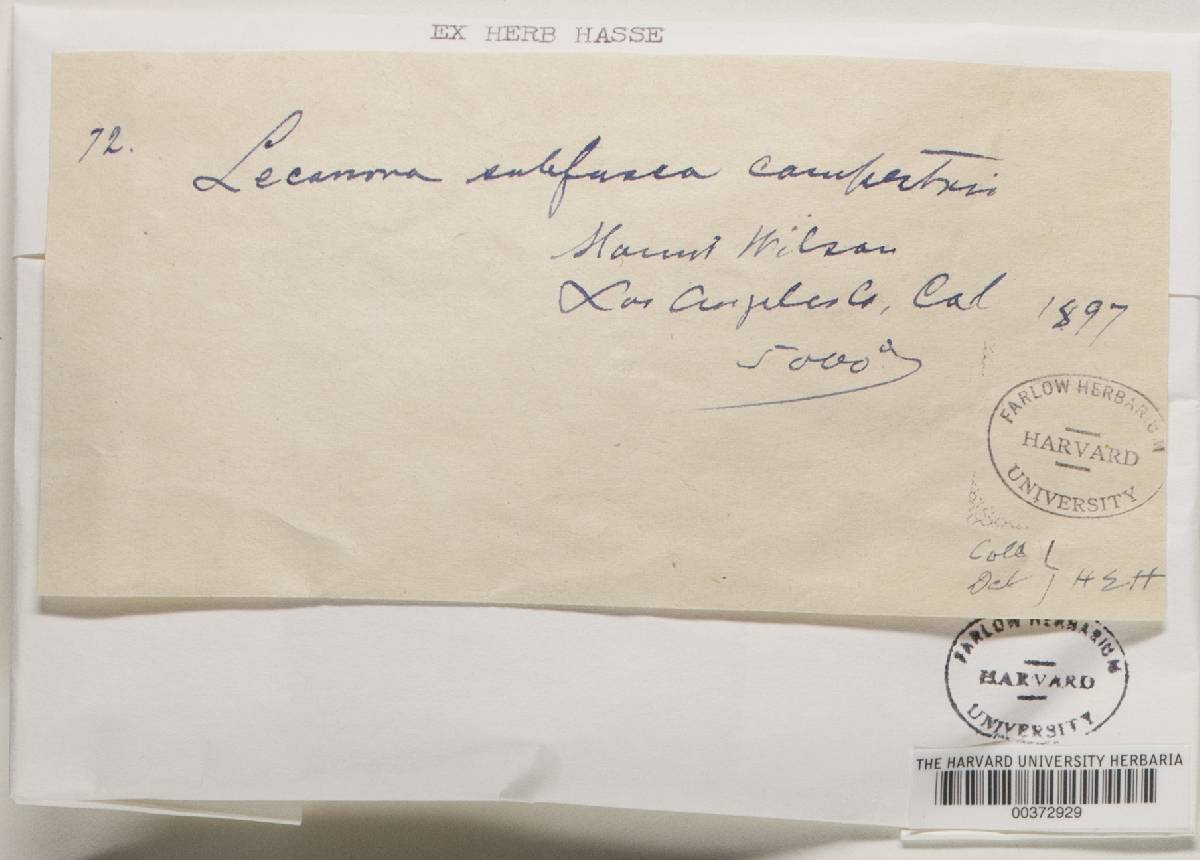 EX HERB HASSE
72.
Lecanora subfusca campestris
Mount Wilson
Los Angeles Co, Cal 1897
5000
FARLOW HERBARIUM
HARVARD
UNIVERSITY
Coll
Det } HEH
FARLOW HERBARIUM
HARVARD
UNIVERSITY
THE HARVARD UNIVERSITY HERBARIA
00372929